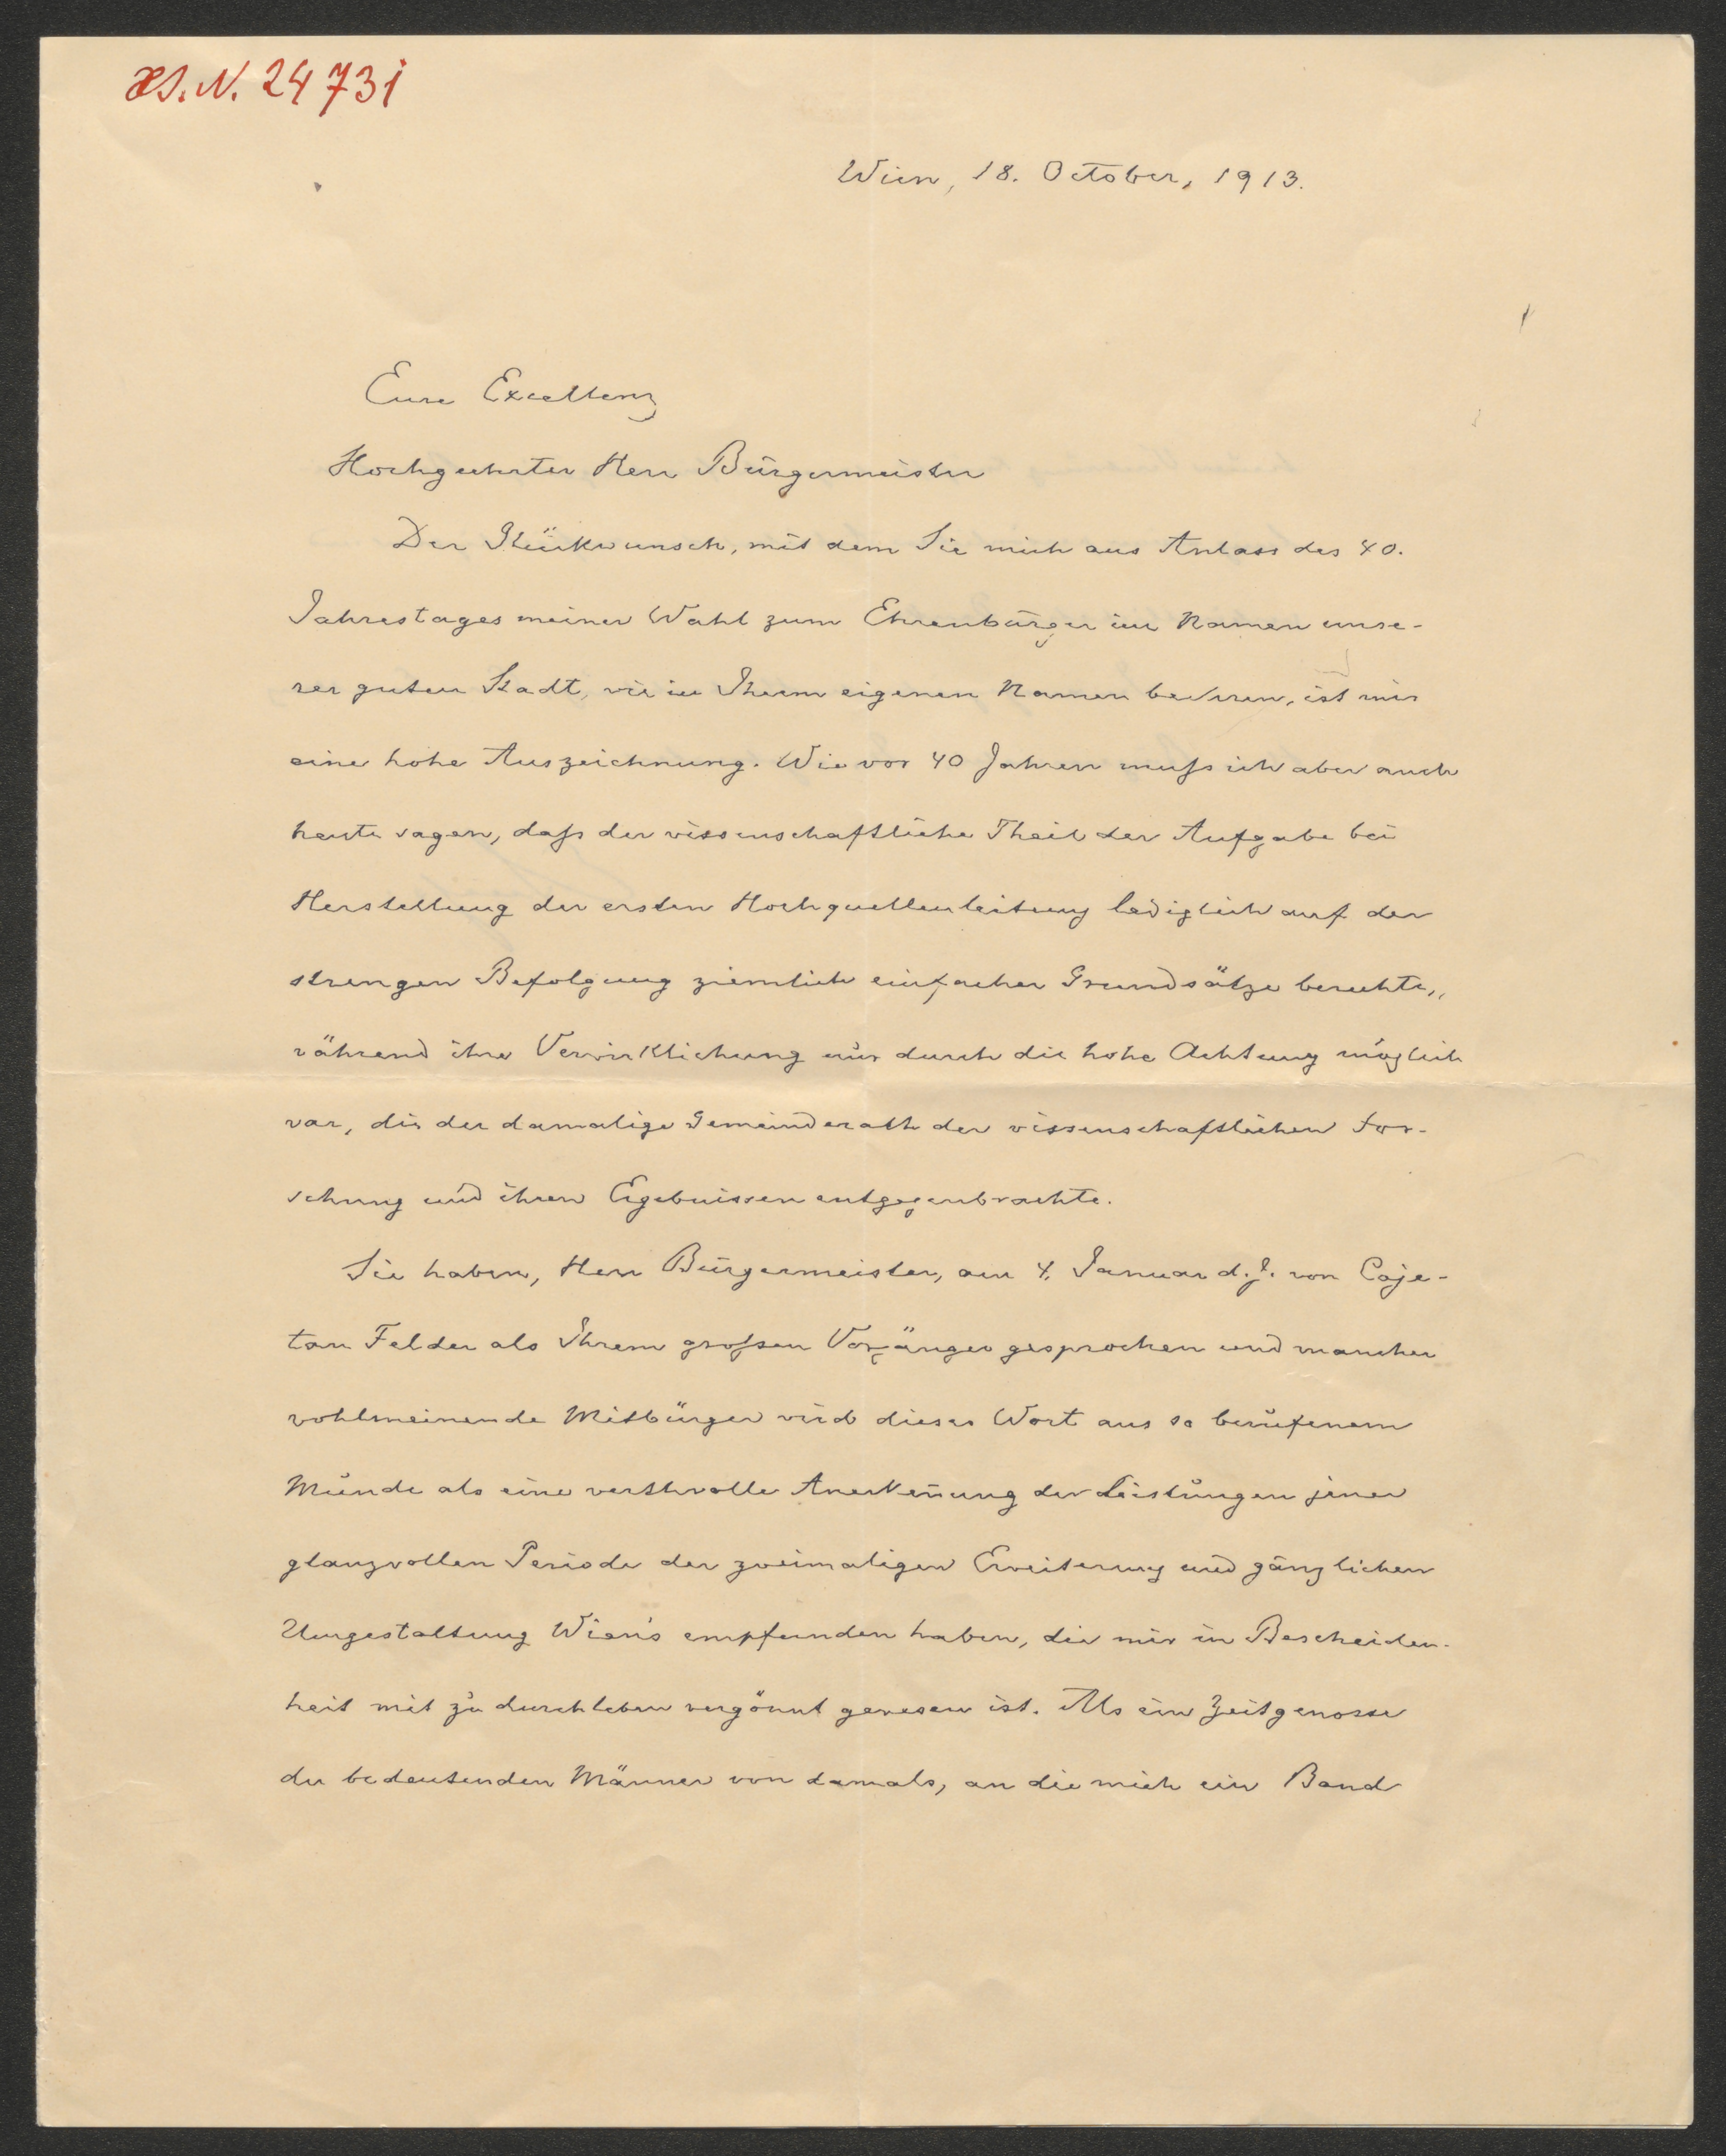 H.I.N. 24731
Wien, 18. October, 1913.
Eure Excellenz
Hochgeehrter Herr Bürgermeister
Der Glückwunsch, mit dem Sie mich aus Anlass des 40.
Jahrestages meiner Wahl zum Ehrenbürger im Namen unse-
rer guten Stadt, wie in Ihrem eigenen Namen beehren, ist mir
eine hohe Auszeichnung. Wie vor 40 Jahren muss ich aber auch
heute sagen, dass der wissenschaftliche Theil der Aufgabe bei
Herstellung der ersten Hochquellenleitung lediglich auf der
strengen Befolgung ziemlich einfacher Grundsätze beruhte,
während ihre Verwirklichung nur durch die hohe Achtung möglich
war, die der damalige Gemeinderath der wissenschaftlichen For-
schung und ihren Ergebnissen entgegenbrachte.
Sie haben, Herr Bürgermeister, am 4. Januar d. J. von Caje-
tan Felder als Ihrem grossen Vorgänger gesprochen und mancher
wohlmeinende Mitbürger wird dieses Wort aus so berufenem
Munde als eine werthvolle Anerkennung der Leistungen jener
glanzvollen Periode der zweimaligen Erweiterung und gänzlichen
Umgestaltung Wien's empfunden haben, die mir in Bescheiden-
heit mit zu durchleben vergönnt gewesen ist. Als ein Zeitgenosse
der bedeutenden Männer von damals, an die mich ein Band